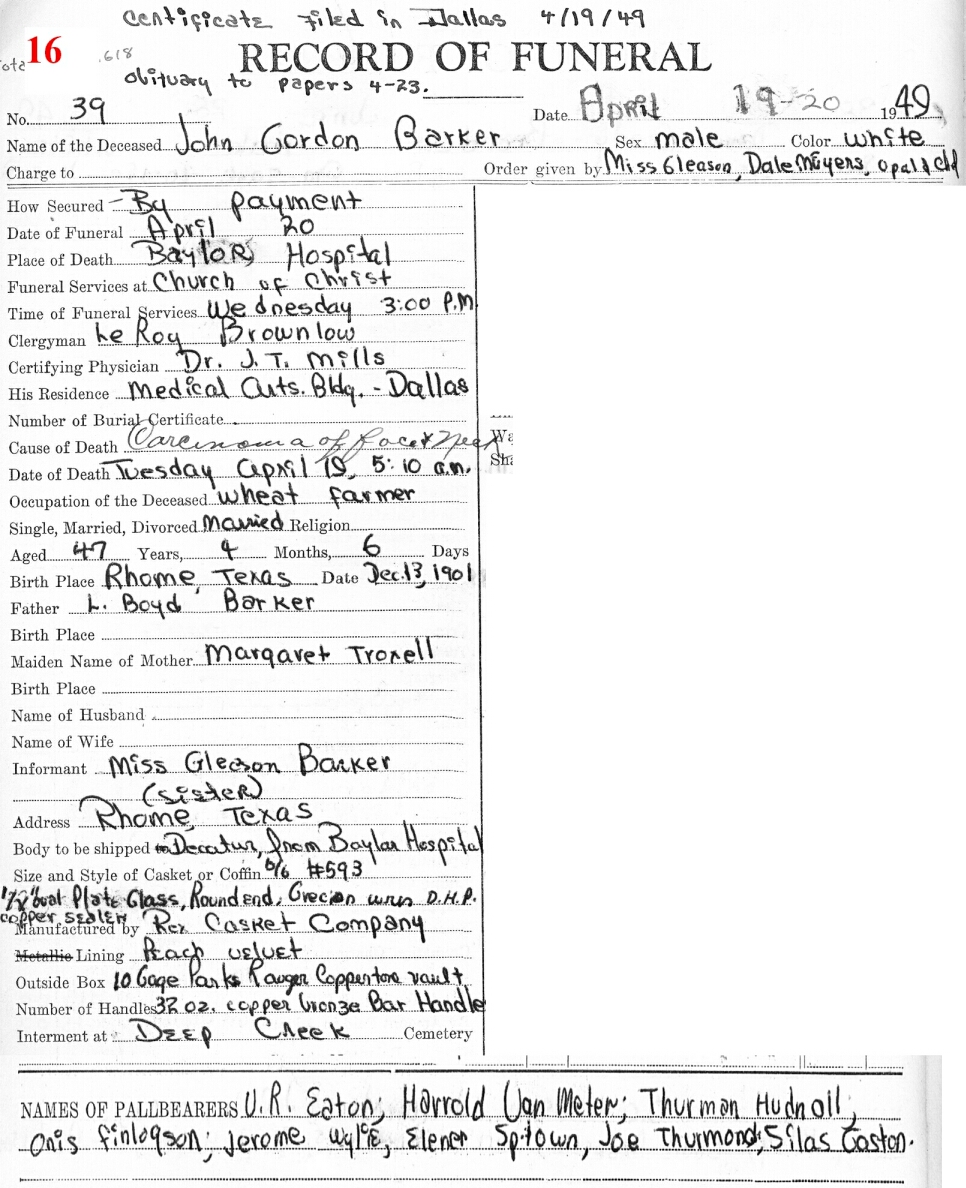 Certificate filed in Dallas 4/19/49
16 .618 RECORD OF FUNERAL
obituary to papers 4-23.
No. 39 Date April 19-20 1949
Name of the Deceased John Gordon Barker Sex male Color white
Charge to Order given by Miss Gleason, Dale Meyers, Opal &
How Secured - By payment
Date of Funeral April 20
Place of Death Baylor Hospital
Funeral Services at Church of Christ
Time of Funeral Services Wednesday 3:00 P.M
Clergyman Le Roy Brownlow
Certifying Physician Dr. J.T. Mills
His Residence Medical Arts. Bldg. - Dallas
Number of Burial Certificate
Cause of Death Carcinoma of face & Neck
Date of Death Tuesday April 19, 5:10 a.m.
Occupation of the Deceased wheat farmer
Single, Married, Divorced Married Religion
Aged 47 Years, 4 Months, 6 Days
Birth Place Rhome, Texas Date Dec. 13, 1901
Father L. Boyd Barker
Birth Place
Maiden Name of Mother Margaret Troxell
Birth Place
Name of Husband
Name of Wife
Informant Miss Gleason Barker
(sister)
Address Rhome, Texas
Body to be shipped to Decatur, from Baylor Hospital
Size and Style of Casket or Coffin 6/6 #593
Oval Plate Glass, Round end, Grecian urns D.H.P.
copper sealer
Manufactured by Rex Casket Company
Metallic Lining Peach velvet
Outside Box 10 Gage Parks Ranger Coppertone vault
Number of Handles 32 oz. copper bronze Bar Handle
Interment at Deep Creek Cemetery
NAMES OF PALLBEARERS U.R. Eaton; Harrold Van Meter; Thurman Hudnall;
Onis Finlogson; Jerome Wylie, Elener Sptown, Joe Thurmond; Silas Gaston.